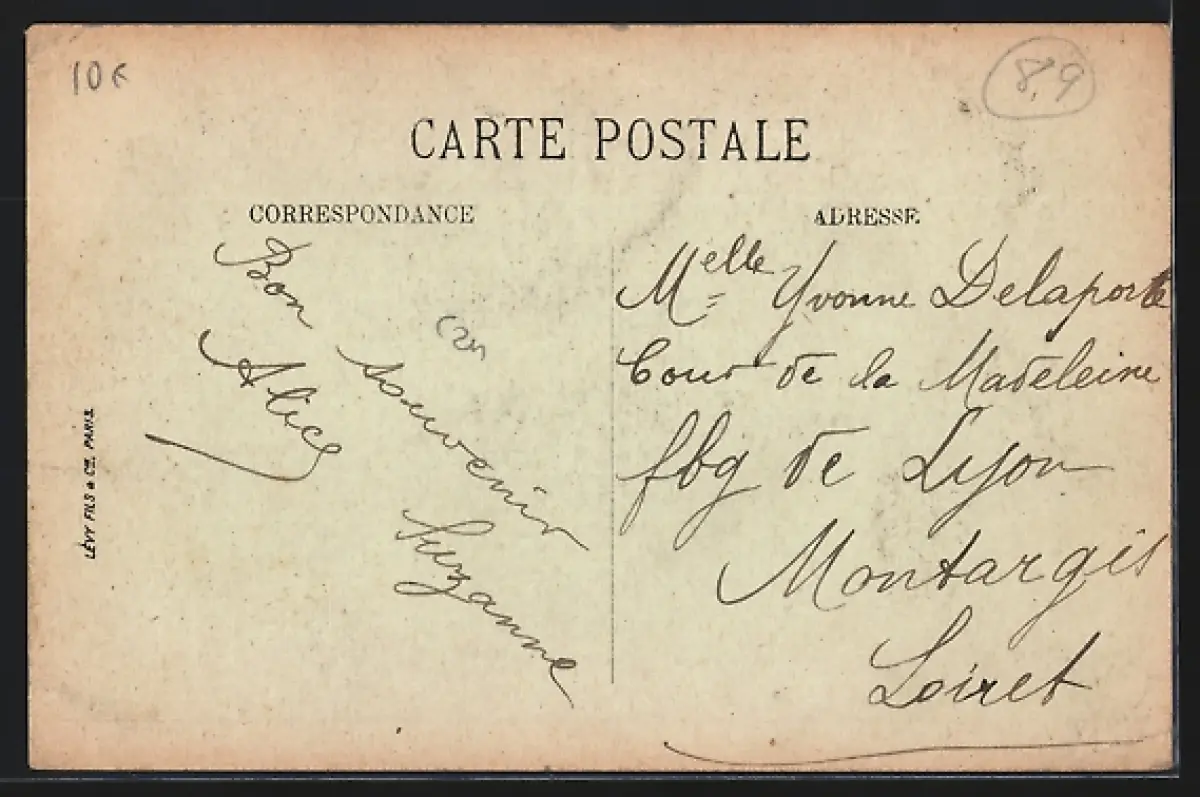 10€
8,9
CARTE POSTALE
CORRESPONDANCE
ADRESSE
Bon souvenir
Alice
Suzanne
Melle Yvonne Delaporte
Cour de la Madeleine
fbg de Lyon
Montargis
Loiret
LÉVY FILS & Cie. PARIS